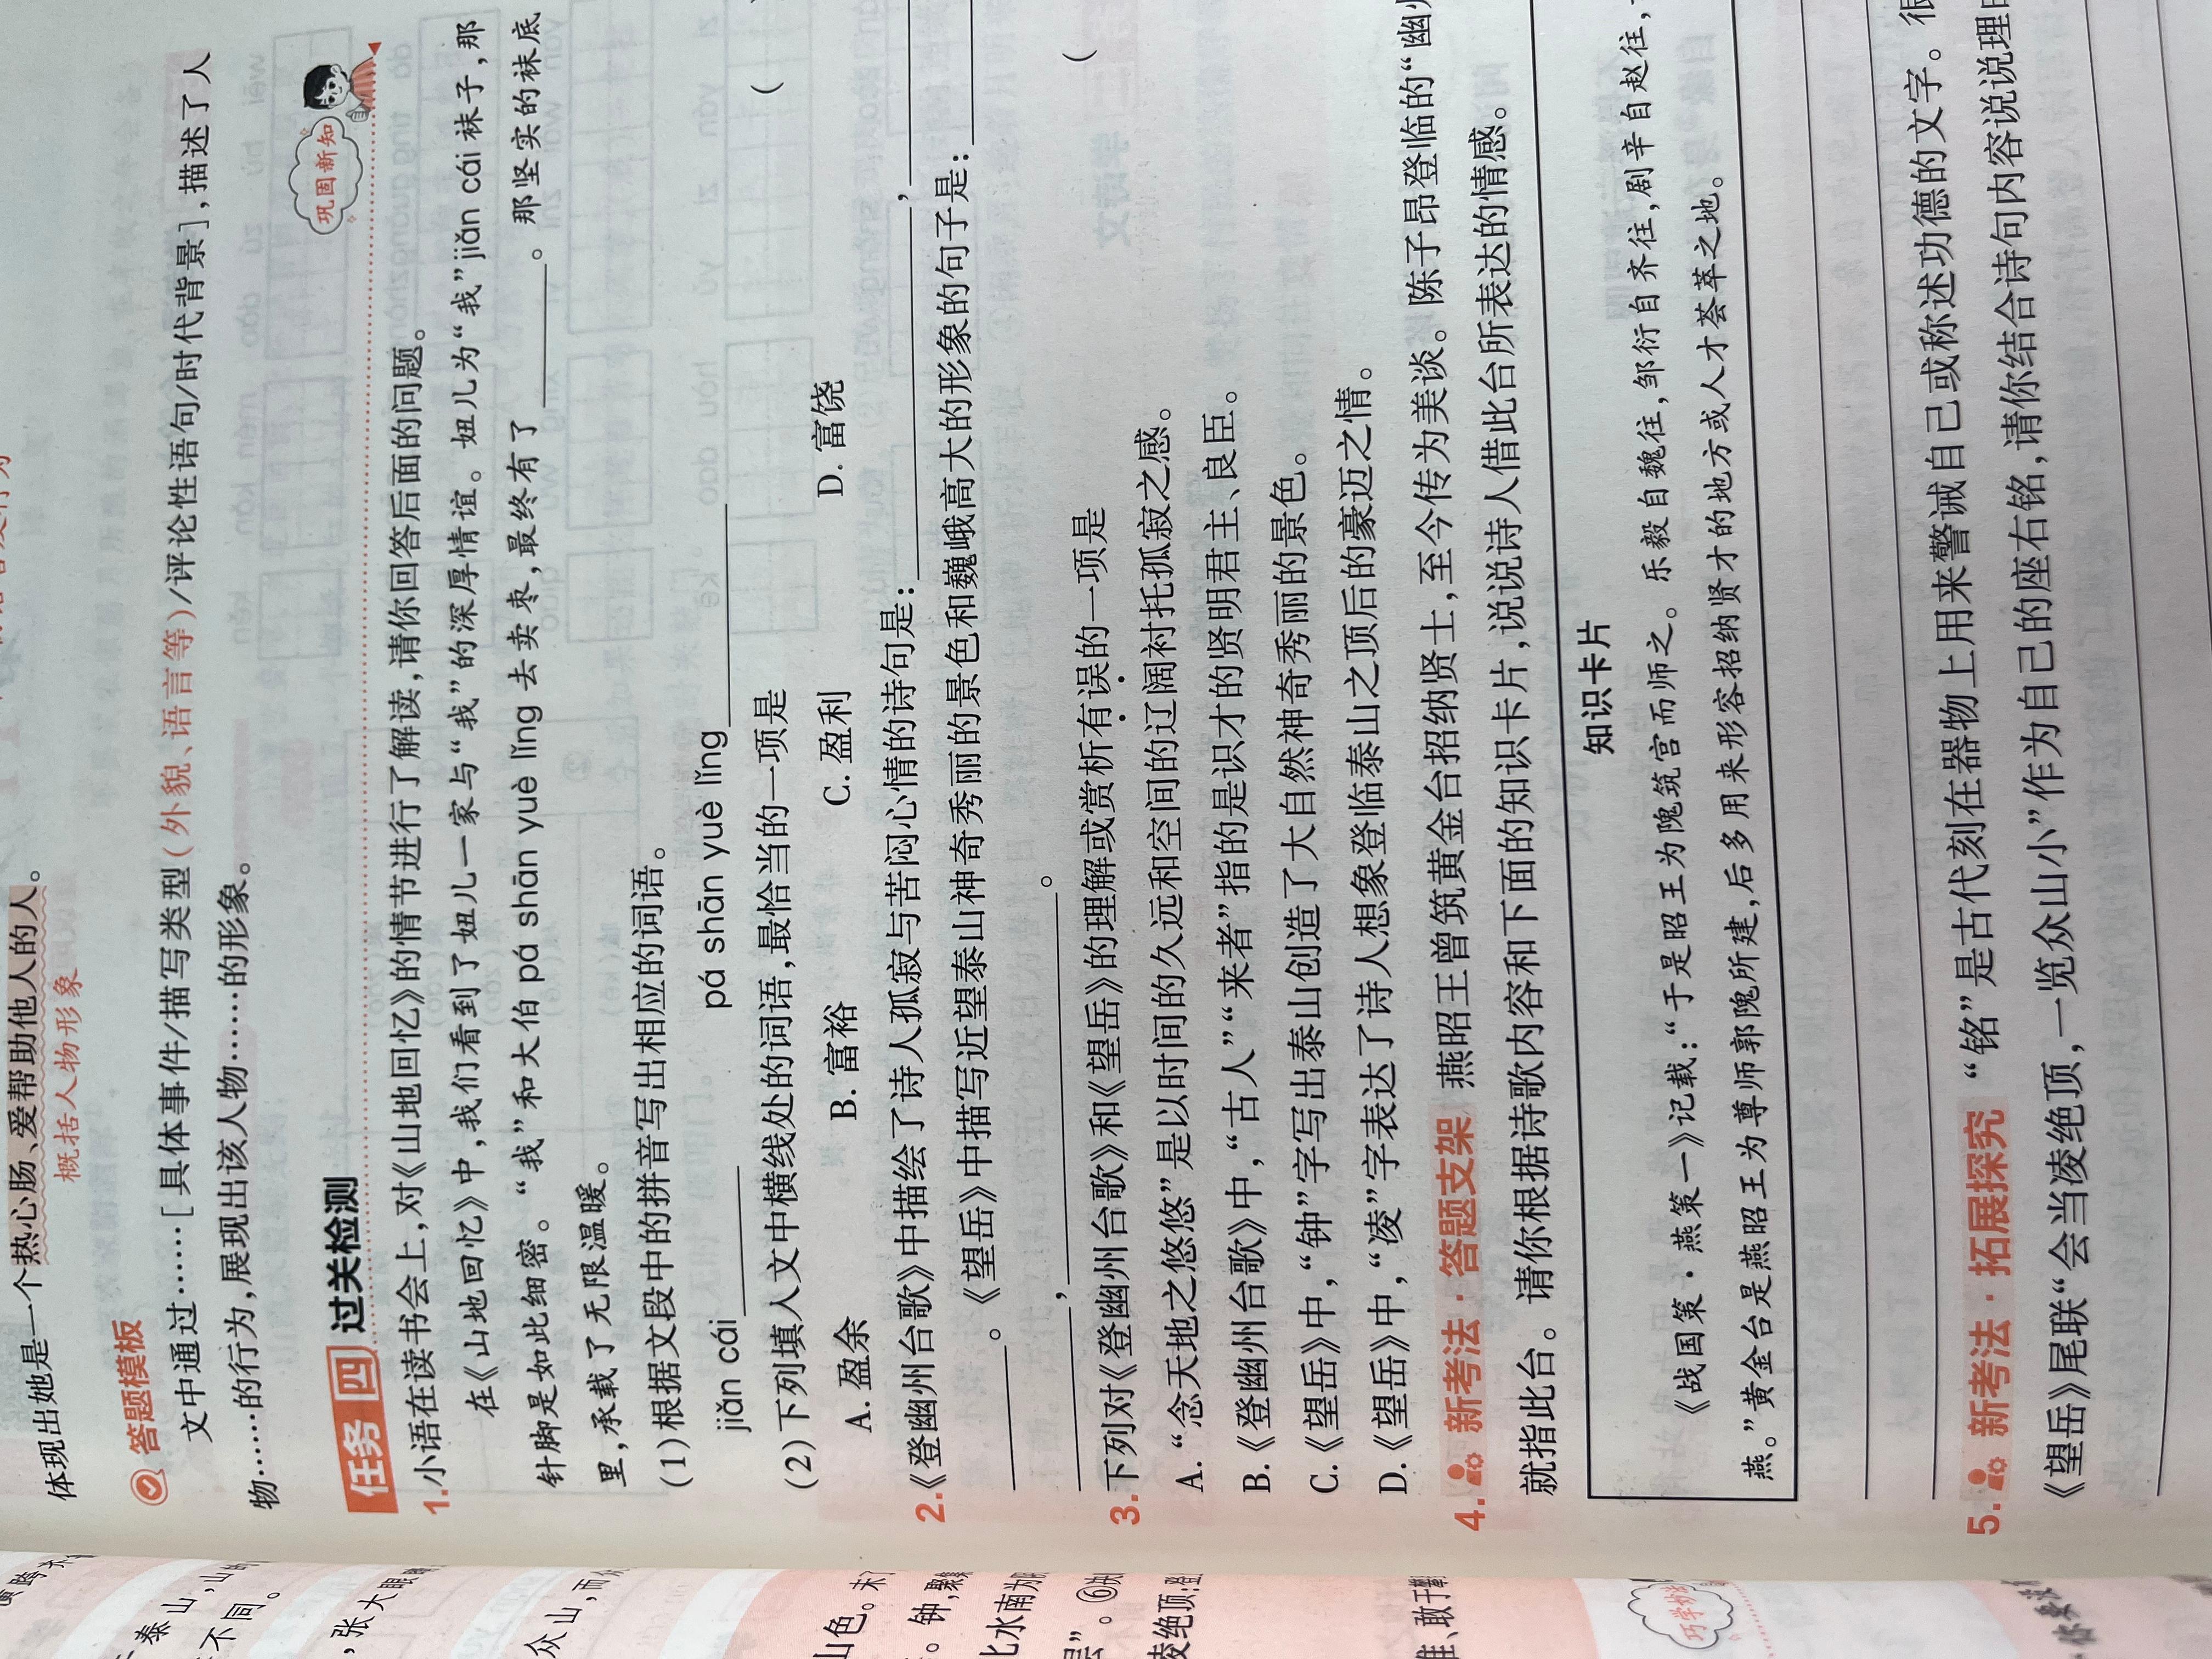 体现出她是一个热心肠、爱帮助他人的人。
概括人物形象
答题模板
文中通过……[具体事件/描写类型(外貌、语言等)/评论性语句/时代背景],描述了人
物……的行为,展现出该人物……的形象。
任务四 过关检测
巩固新知
1.小语在读书会上,对《山地回忆》的情节进行了解读,请你回答后面的问题。
在《山地回忆》中,我们看到了妞儿一家与“我”的深厚情谊。妞儿为“我”jiǎn cái袜子,那
针脚是如此细密。“我”和大伯pá shān yuè lǐng去卖枣,最终有了______。那坚实的袜底
里,承载了无限温暖。
(1)根据文段中的拼音写出相应的词语。
jiǎn cái______ pá shān yuè lǐng______
(2)下列填入文中横线处的词语,最恰当的一项是 (
A. 盈余 B. 富裕 C. 盈利 D. 富饶
2.《登幽州台歌》中描绘了诗人孤寂与苦闷心情的诗句是:______,
______。《望岳》中描写近望泰山神奇秀丽的景色和巍峨高大的形象的句子是:______
______,______。
3.下列对《登幽州台歌》和《望岳》的理解或赏析有误的一项是 (
A.“念天地之悠悠”是以时间的久远和空间的辽阔衬托孤寂之感。
B.《登幽州台歌》中,“古人”“来者”指的是识才的贤明君主、良臣。
C.《望岳》中,“钟”字写出泰山创造了大自然神奇秀丽的景色。
D.《望岳》中,“凌”字表达了诗人想象登临泰山之顶后的豪迈之情。
4. 新考法·答题支架 燕昭王曾筑黄金台招纳贤士,至今传为美谈。陈子昂登临的“幽
就指此台。请你根据诗歌内容和下面的知识卡片,说说诗人借此台所表达的情感。
知识卡片
《战国策·燕策一》记载:“于是昭王为隗筑宫而师之。乐毅自魏往,邹衍自齐往,剧辛自赵往,
燕。”黄金台是燕昭王为尊师郭隗所建,后多用来形容招纳贤才的地方或人才荟萃之地。
5. 新考法·拓展探究 “铭”是古代刻在器物上用来警诫自己或称述功德的文字。很
《望岳》尾联“会当凌绝顶,一览众山小”作为自己的座右铭,请你结合诗句内容说说理
泰山,山
不同。
,张大眼
众山,而
山色。未
。钟,聚集
北水南为
层”。⑥决
凌绝顶:登
巧学妙